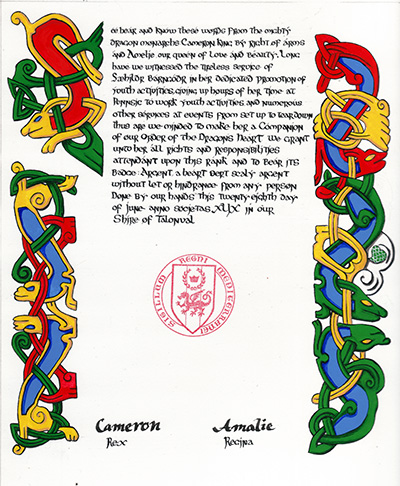 So hear and know these words from the mighty
dragon monarchs Cameron King by right of arms
and Amelie our queen of Love and Beauty. Long
have we witnessed the tireless service of
Sæhildr Barngóðr in her dedicated promotion of
youth activities, giving up hours of her time at
Pennsic to work youth activities and numerous
other services at events from set up to teardown
thus are we minded to make her a Companion
of our Order of the Dragons Heart. We grant
unto her all rights and responsibilities
attendant upon this rank and to bear its
badge: Argent a heart vert scaly argent
without let or hindrance from any person
Done by our hands this twenty-eighth day
of June anno societas in our
Shire of Talonval
SIGILLUM REGNI MEDITERRANEI
Cameron Amalie
Rex Regina